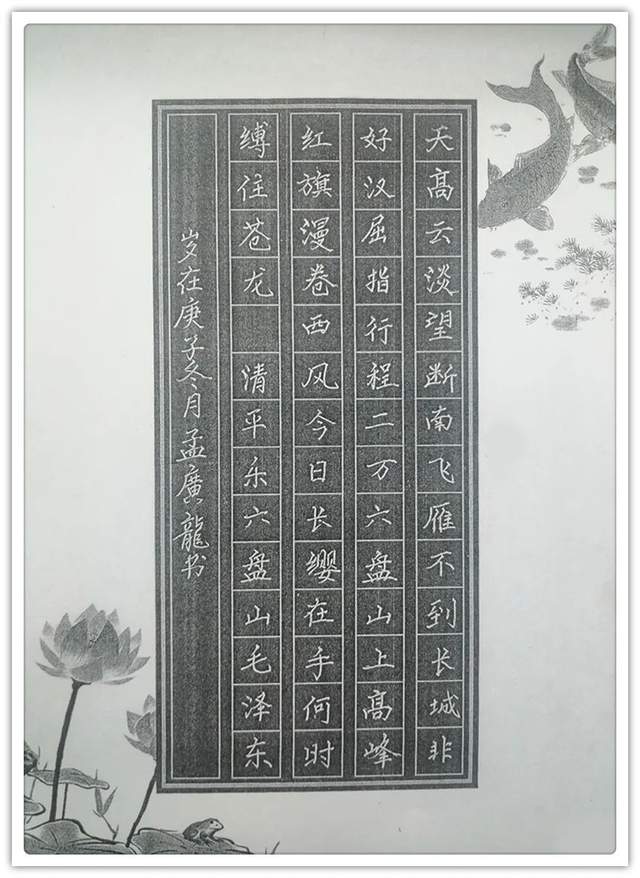 天高云淡望断南飞雁不到长城非
好汉屈指行程二万六盘山上高峰
红旗漫卷西风今日长缨在手何时
缚住苍龙 清平乐六盘山毛泽东
岁在庚子冬月孟廣龍书